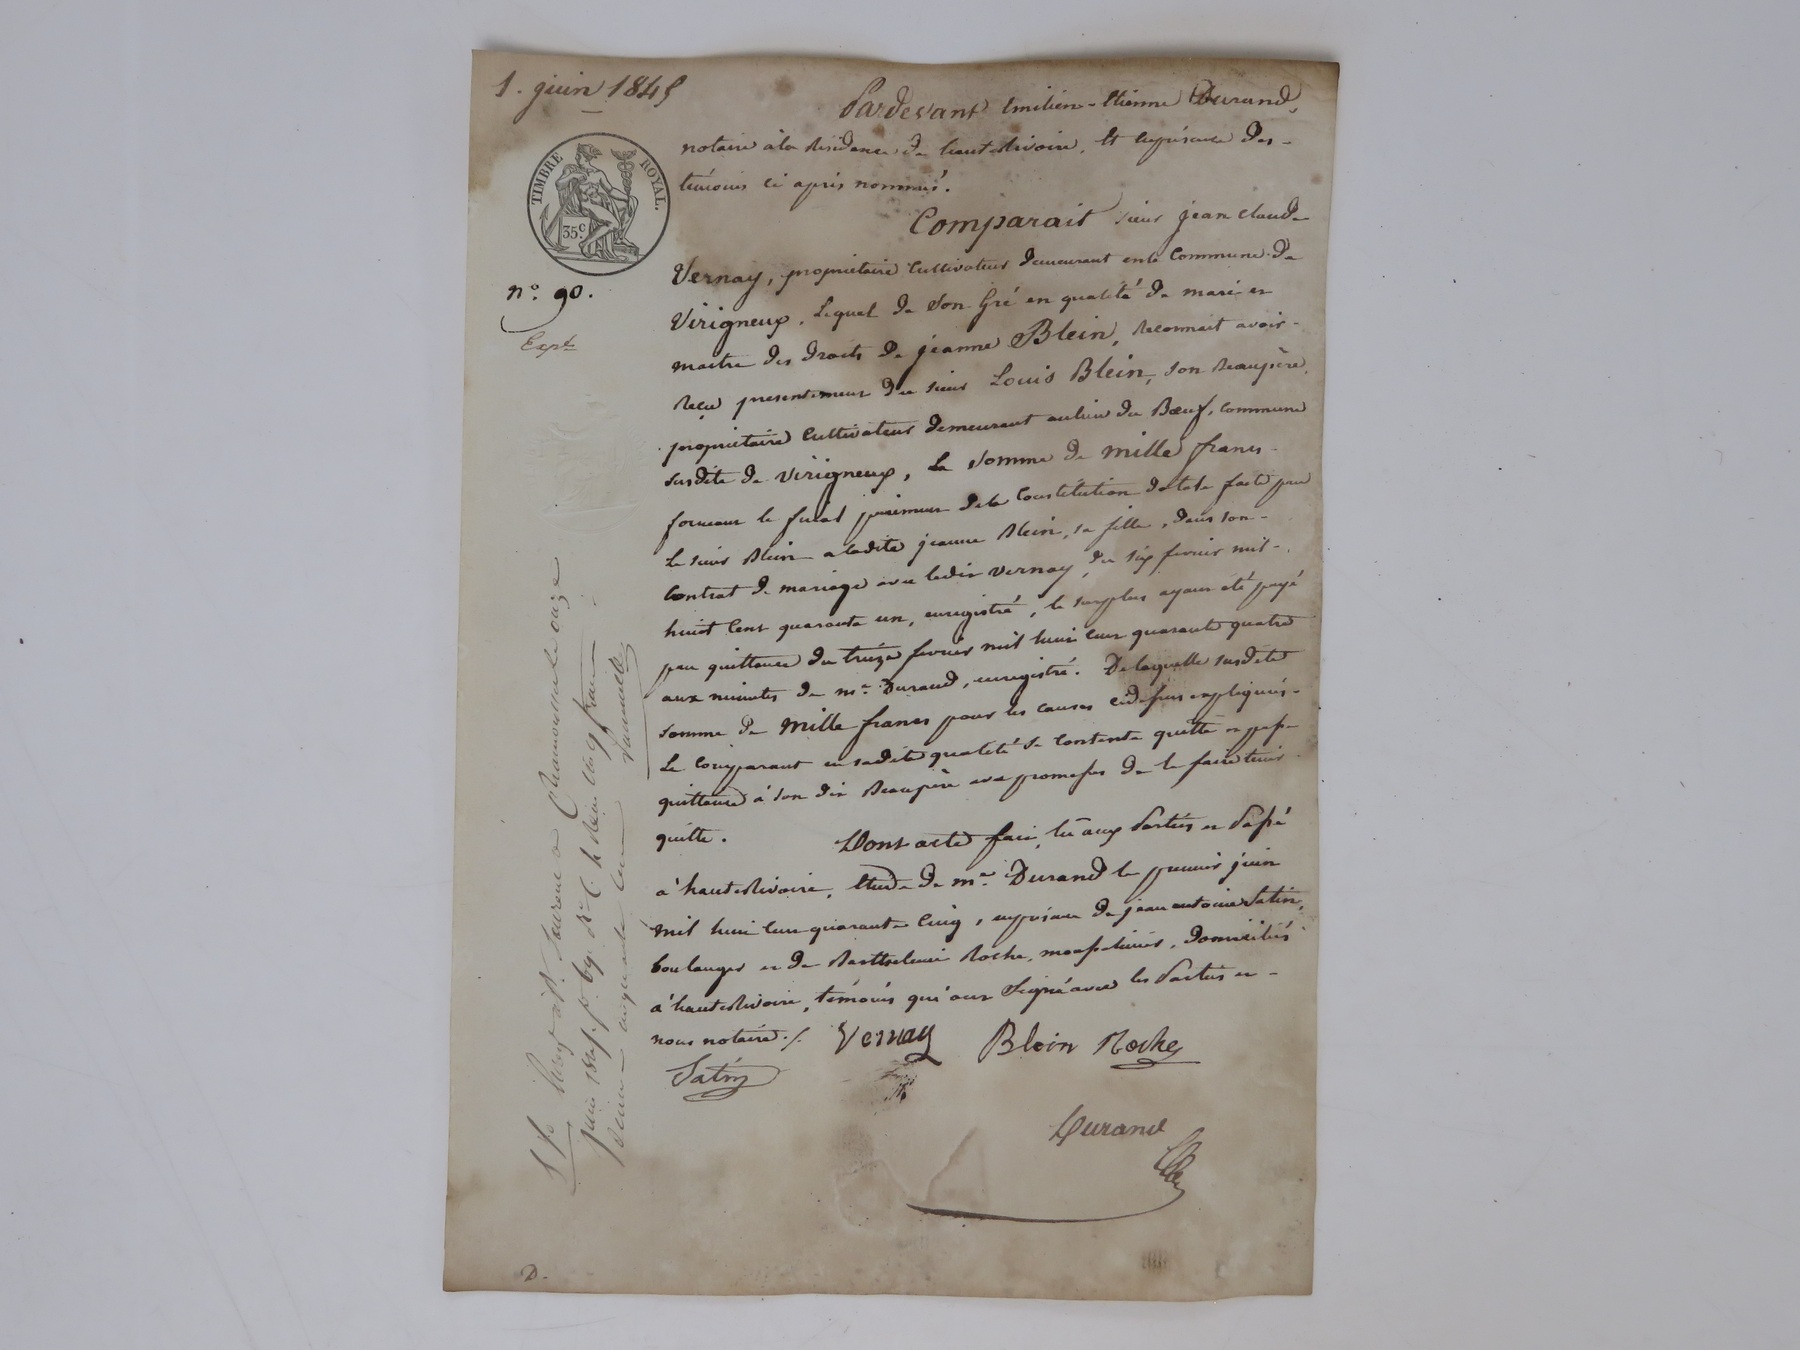 1. juin 1845
TIMBRE ROYAL.
35c
n° 90.
Expte
Pardevant Emilien-Etienne Durand,
notaire à la Résidence de haut Rivoire, Et enprésence des-
témoins ci après nommés.
Comparait sieur jean Claude
Vernay, propriétaire Cultivateur demeurant enla Commune de
Virigneux, Lequel de Son Gré en qualité de mari et
maitre des droits de jeanne Blein, Reconnait avoir-
Reçu presentement du sieur Louis Blein, son Beaupère,
propriétaire Cultivateur demeurant aulieu du Bœuf, commune
susdite de Virigneux, La Somme de mille francs-
formant le final paiement dela Constitution dotale faite par
Le sieur Blein a ladite jeanne Blein, sa fille, dans son-
Contrat de mariage avec ledit Vernay, du six fevrier mil-
huit Cent quarante un, enregistré, le surplus ayant été payé
par quittance du treize fevrier mil huit cent quarante quatre
aux minutes de me Durand, enregistré. Delaquelle susdite
somme de Mille francs pour les causes cidessus expliqués-
Le Comparant en sadite qualité Se Contente quitte et passe
quittance à Son dit Beaupère avec promesses de le faire tenir
quitte.
Dont acte fait, lu aux Parties et Passé
à hauteRivoire, Etude de me Durand le premier juin
mil huit cent quarante Cinq, enprésence de jean antoine Satin,
boulanger et de Barthelemi Roche, domiciliés
à hauteRivoire, témoins qui ont Signé avec les Parties et-
nous notaire./.
Vernay Blein Roche
Satin
Durand
St Laurent de Chamousset le onze
juin 1845 fo 69
cinquante
D.